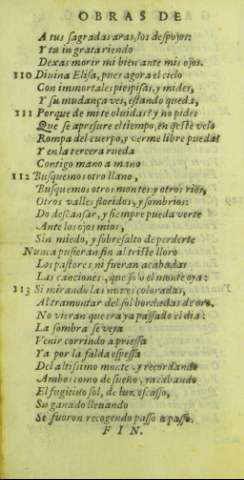 OBRAS DE
A tus sagradas aras, los despojos:
Y tu ingrata riendo
Dexas morir mi bien ante mis ojos.
110 Diuina Elisa, pues agora el cielo
Con immortales pies pisas, y mides,
Y su mudança ves, estando queda,
111 Porque de mi te oluidas? y no pides
Que se apresure el tiempo, en q̃ este velo
Rompa del cuerpo, y verme libre pueda?
Y en la tercera rueda
Contigo mano a mano
112 Busquemos otro llano,
Busquemos otros montes y otros rios,
Otros valles floridos, y sombrios:
Do descansar, y siempre pueda verte
Ante los ojos mios,
Sin miedo, y sobresalto de perderte
Nunca pusieran fin al triste lloro
Los pastores ni fueran acabadas
Las canciones, que solo el monte oya:
113 Si mirando las nuues coloradas,
Al tramontar del sol bordadas de oro,
No vieran que era ya passado el dia:
La sombra se veya
Venir corriendo a priessa
Ya por la falda espessa
Del altissimo monte y recordando
Ambos como de sueño, y acabando
El fugitiuo sol, de luz escasso,
Su ganado lleuando
Se fueron recogendo passo a passo.
FIN.